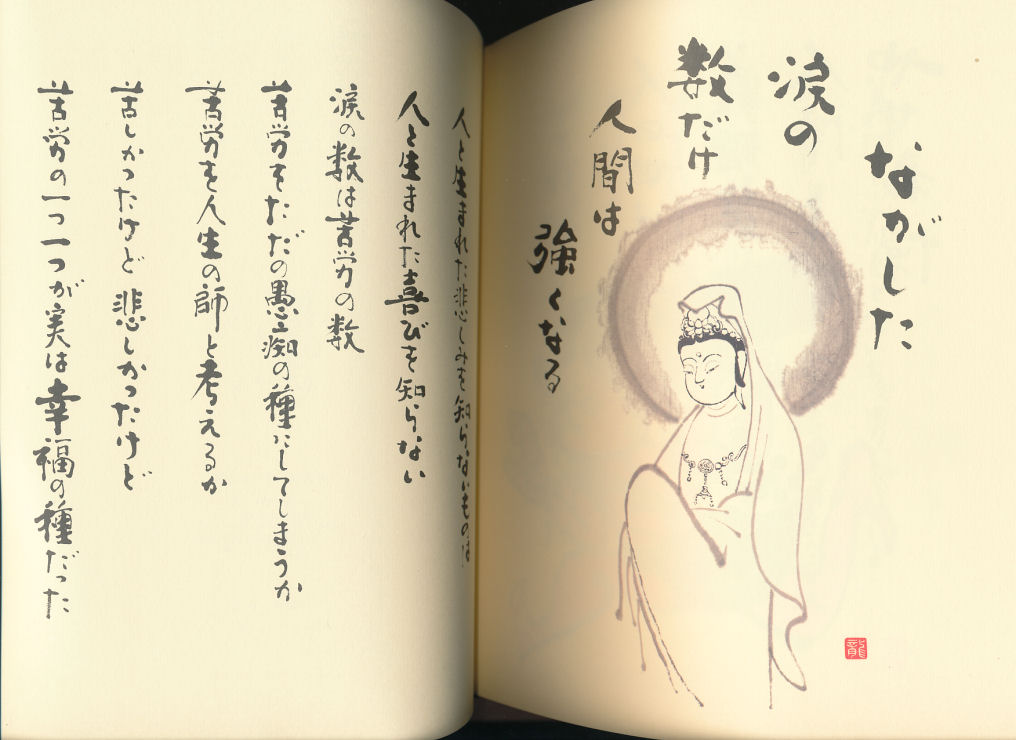 ながした
涙の
数だけ
人間は
強くなる
龍
人と生まれた悲しみを知らないものは
人と生まれた喜びを知らない
涙の数は苦労の数
苦労をただの愚痴の種にしてしまうか
苦労を人生の師と考えるか
苦しかったけど悲しかったけど
苦労の一つ一つが実は幸福の種だった